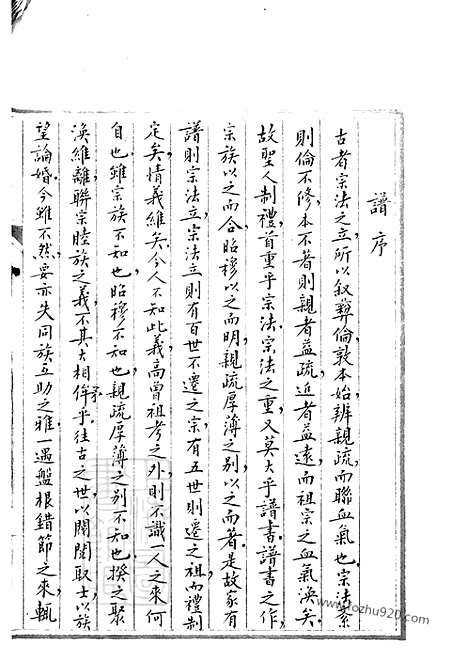 譜序
古者宗法之立所以叙彛倫敦本始辨親疏而聯血氣也宗法紊
則倫不修本不著則親者益疏近者益遠而祖宗之血氣渙矣
故聖人制禮首重乎宗法宗法之重又莫大乎譜書譜書之作
宗族以之而合昭穆以之而明親疏厚薄之别以之而著是故家有
譜則宗法立宗法立則有百世不遷之宗有五世則遷之祖而禮制
定矣情義維矣今人不知此義高曾祖考之外則不識一人之來何
自也雖宗族不知也昭穆不知也親疏厚薄之别不知也揆之聚
渙維離聯宗睦族之義不其大相侔矛乎往古之世以閥閱取士以族
望論婚今雖不然要亦失同族互助之雅一遇盤根錯節之來輒
www.fozhu920.com